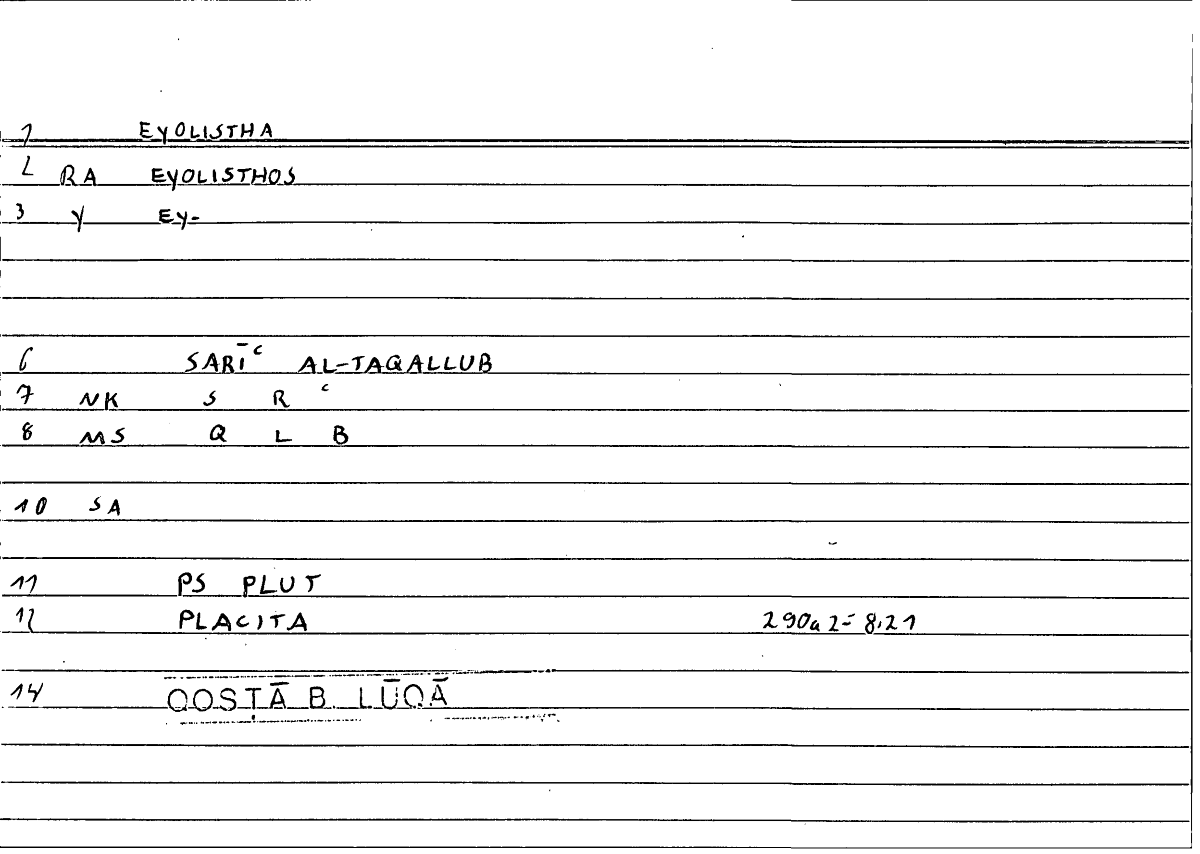 1 EYOLISTHA
2 RA EYOLISTHOS
3 Y EY-
6 SARĪʿ AL-TAQALLUB
7 NK S R ʿ
8 MS Q L B
10 SA
11 PS PLUT
12 PLACITA 290a2-8,21
14 QOSṬĀ B. LŪQĀ